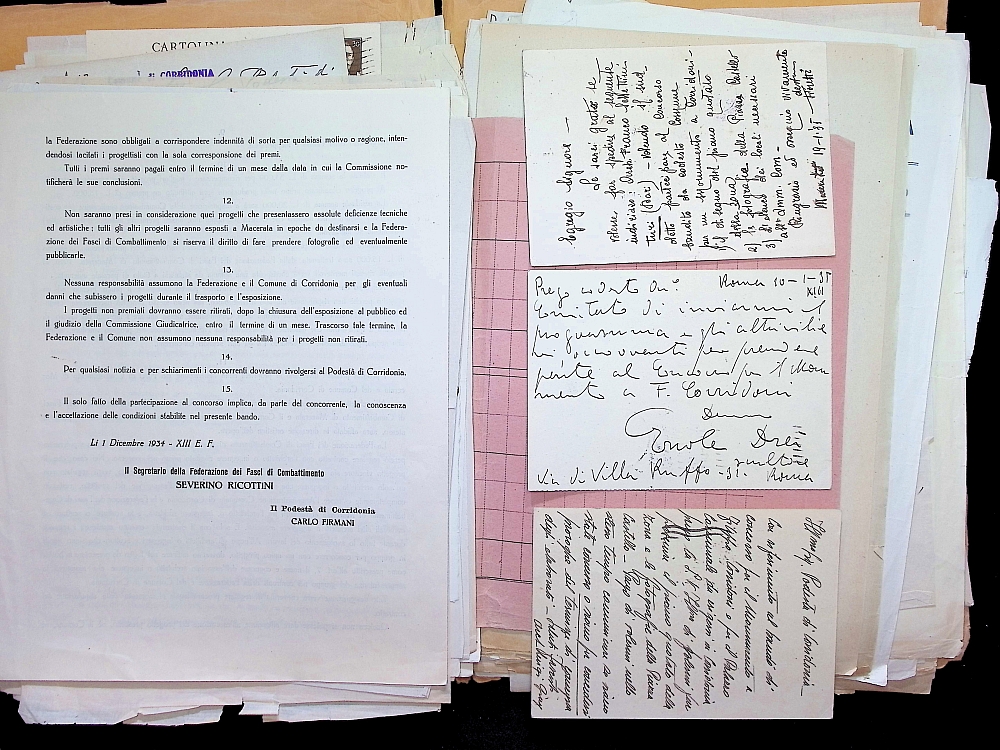 CARTOLINA
CORRIDONIA
la Federazione sono obbligati a corrispondere indennità di sorta per qualsiasi motivo o ragione, inten-
dendosi tacitati i progettisti con la sola corresponsione dei premi.
Tutti i premi saranno pagati entro il termine di un mese dalla data in cui la Commissione no-
tificherà le sue conclusioni.
12.
Non saranno presi in considerazione quei progetti che presentassero assolute deficienze tecniche
ed artistiche; tutti gli altri progetti saranno esposti a Macerata in epoche da destinarsi e la Federa-
zione dei Fasci di Combattimento si riserva il diritto di fare prendere fotografie ed eventualmente
pubblicarle.
13.
Nessuna responsabilità assumono la Federazione e il Comune di Corridonia per gli eventuali
danni che subissero i progetti durante il trasporto e l'esposizione.
I progetti non premiati dovranno essere ritirati, dopo la chiusura dell'esposizione al pubblico ed
il giudizio della Commissione Giudicatrice, entro il termine di un mese. Trascorso tale termine, la
Federazione e il Comune non assumono nessuna responsabilità per i progetti non ritirati.
14.
Per qualsiasi notizia e per schiarimenti i concorrenti dovranno rivolgersi al Podestà di Corridonia.
15.
Il solo fatto della partecipazione al concorso implica, da parte del concorrente, la conoscenza
e l'accettazione delle condizioni stabilite nel presente bando.
Li 1 Dicembre 1934 - XIII E. F.
Il Segretario della Federazione dei Fasci di Combattimento
SEVERINO RICOTTINI
Il Podestà di Corridonia
CARLO FIRMANI
Egregio Signore —
Le sarei grato se
volesse far spedire al seguente
indirizzo: Franco
(Bari) - volendo il sud-
detto partecipare al Concorso
bandito da codesto Comune
per un Monumento a Corridoni -
1) il disegno del piano quotato
della zona
2) la fotografia della Piazza Castello
3) elenco dei locali necessari
all'Amm. Com. -
Ringrazio ed ossequio vivamente
19-1-35
Prego codesto On.
Roma 10-1-35
XIII
Comitato di inviarmi il
programma e gli altri
occorrenti per prendere
parte al Concorso per il Monu
mento a F. Corridoni
Ercole Drei
scultore
Via di Villa Ruffo 31. Roma
Podestà di Corridonia
Con riferimento al bando di
concorso per il Monumento a
Filippo Corridoni e per il Palazzo
Comunale da erigersi a Corridonia
prego la S. V. di spedirmi
il piano quotato della
zona e le fotografie della Piazza
Castello - Prego di volermi nello
stesso tempo comunicare se sono
state concesse o saranno concesse
proroghe del termine di consegna
degli elaborati -